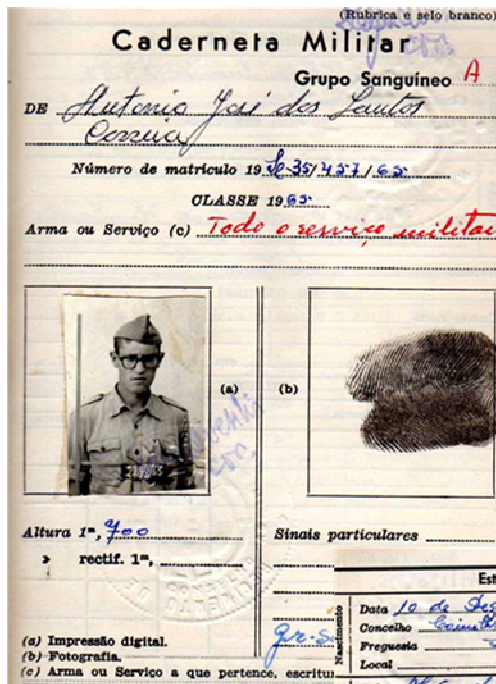 (Rubrica e selo branco)
Caderneta Militar
Grupo Sanguíneo A
DE Antonio José dos Santos
Correia
Número de matrículo 19 /457/65
CLASSE 1965
Arma ou Serviço (c) Todo o serviço militar
(a)
(b)
Altura 1ᵐ, 700
Sinais particulares
» rectif. 1ᵐ,
(a) Impressão digital.
(b) Fotografia.
(c) Arma ou Serviço a que pertence, escritur
Est
Nascimento
Data 10 de
Concelho
Freguesia
Local